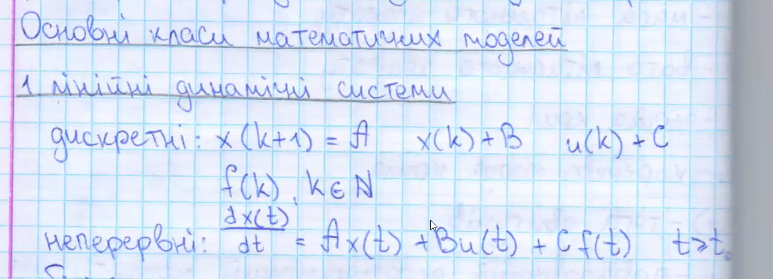 Основні класи математичних моделей
1 лінійні динамічні системи
дискретні: x(k+1) = A x(k) + B u(k) + C
f(k), k ∈ N
неперервні: dx(t)/dt = Ax(t) + Bu(t) + Cf(t) t≥t